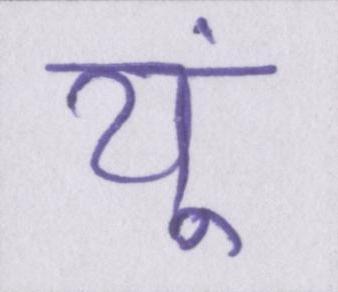 यूं